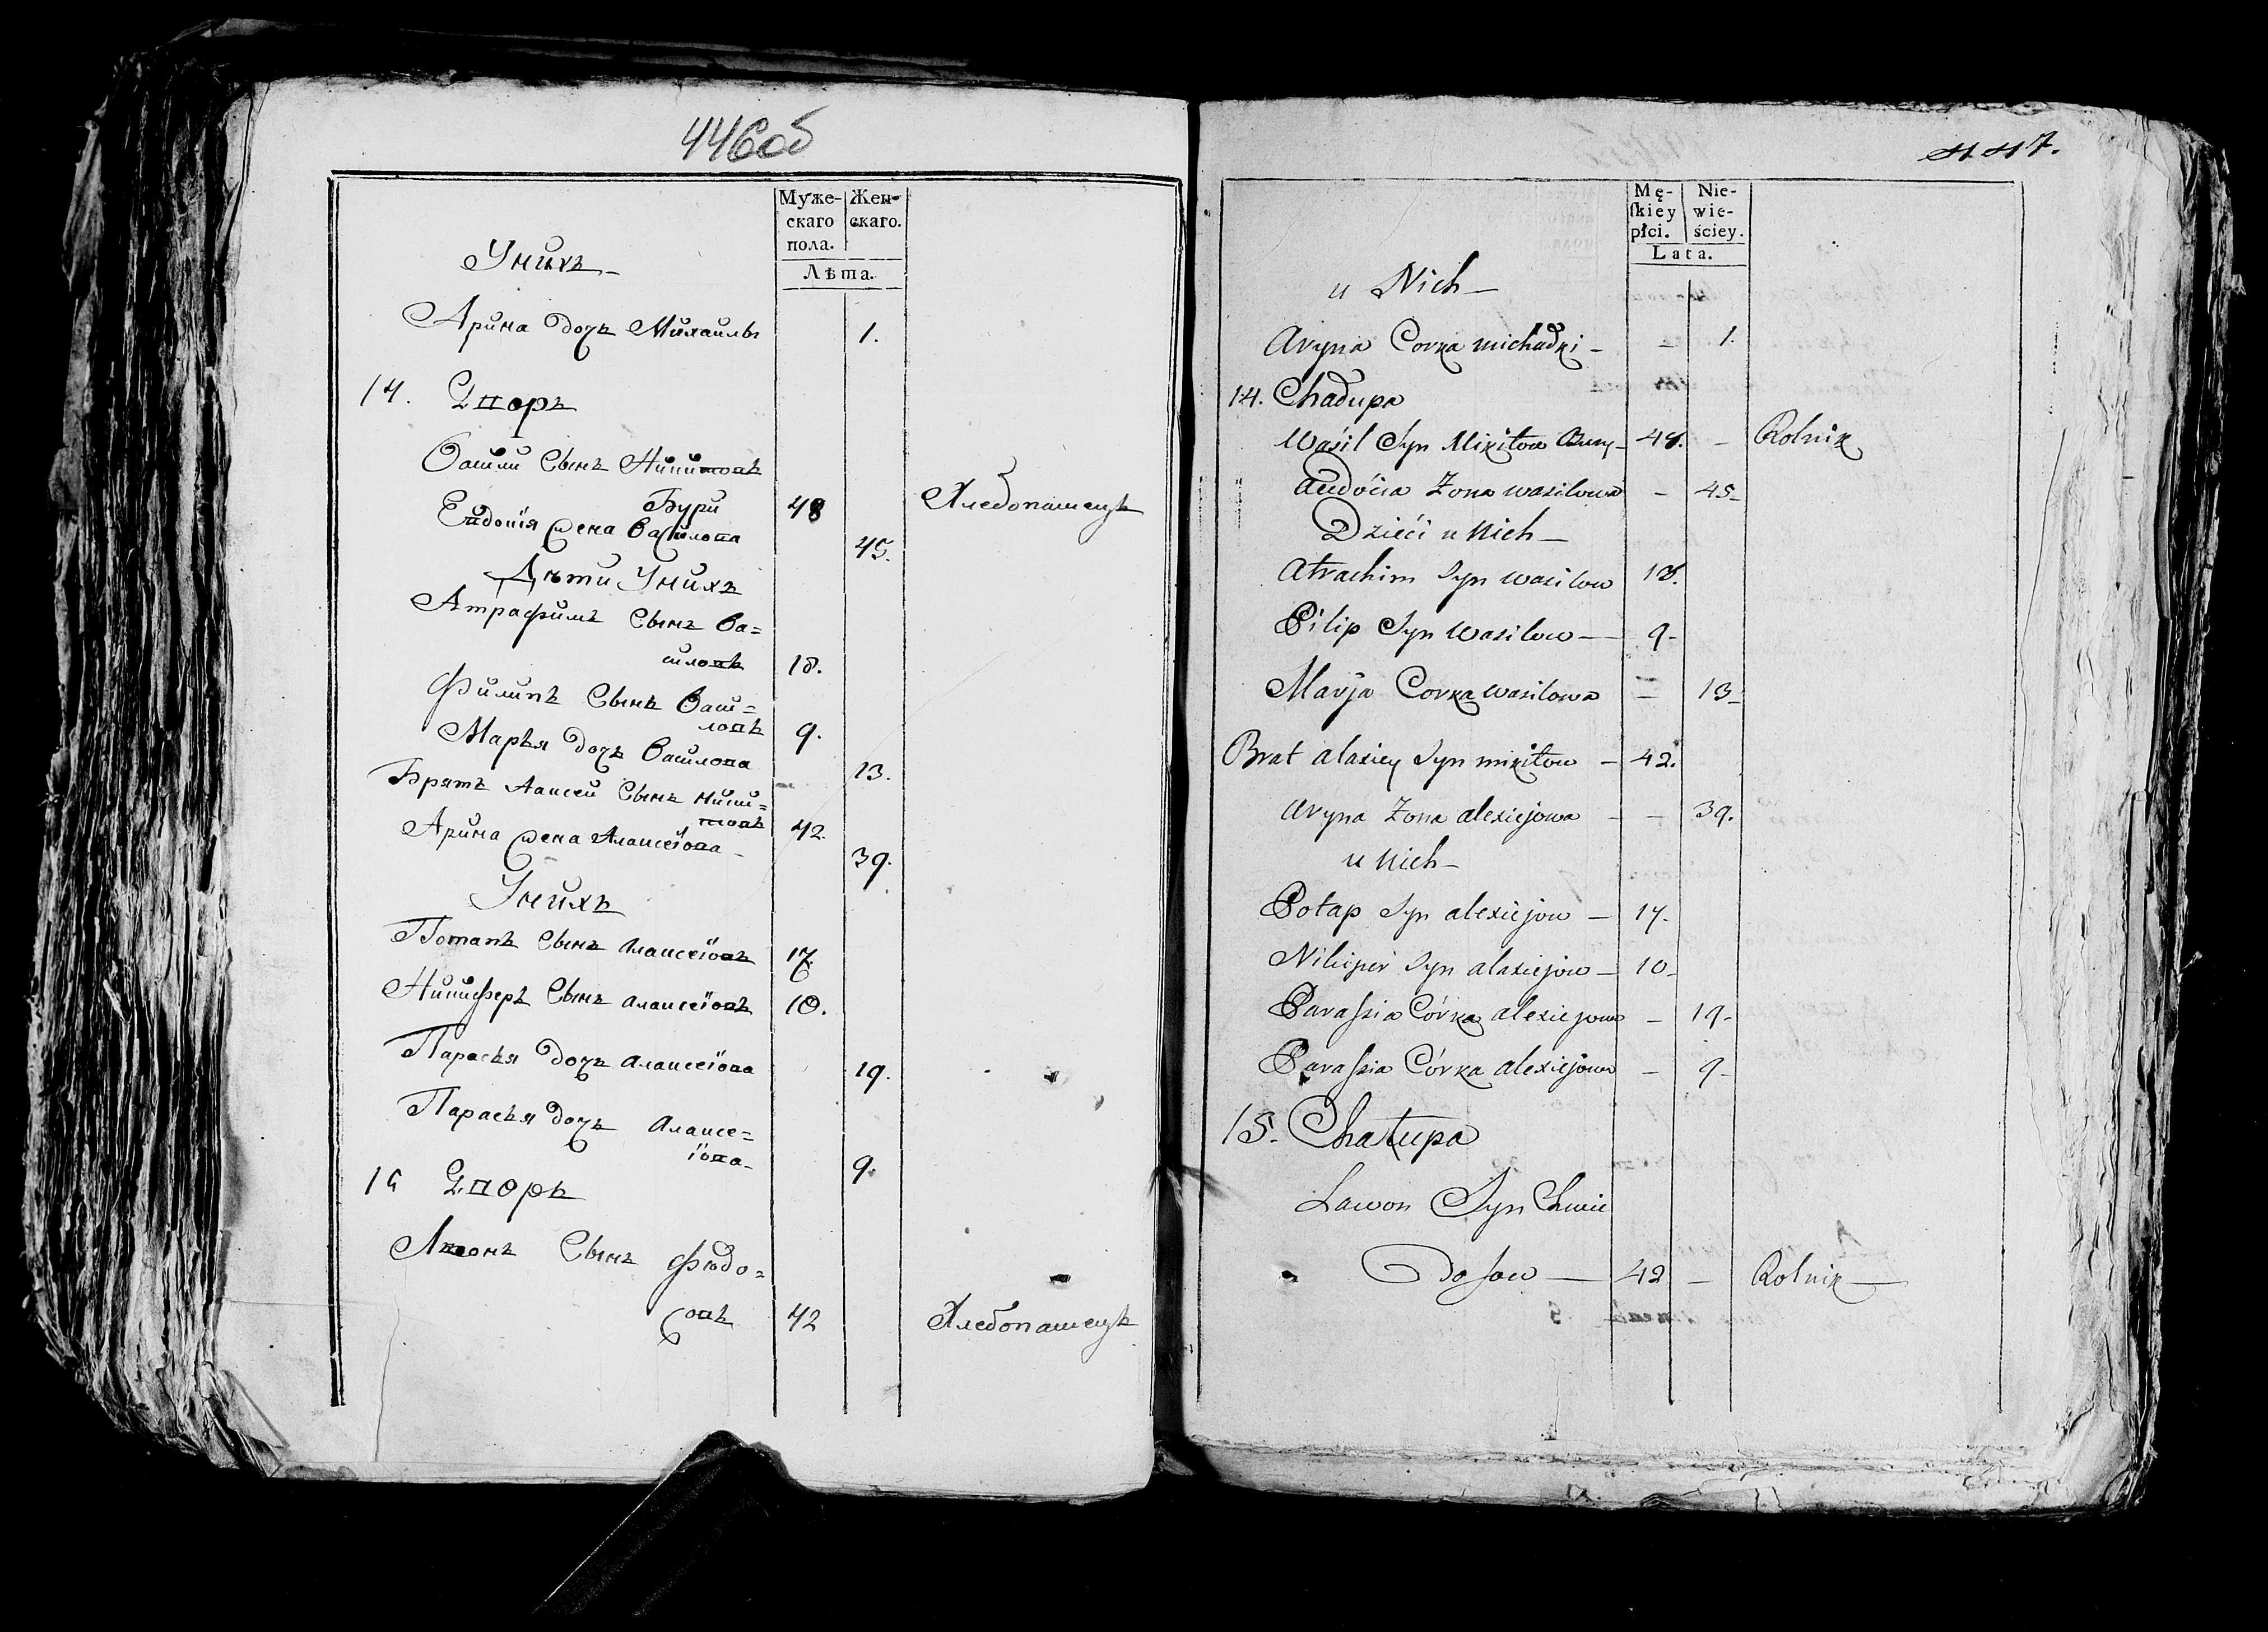 446 об
Муже-
скаго
пола.
Жен-
скаго.
Лѣта.
Унихъ
Арина дочь Михаилы 1.
14. Дворъ
Василй Сынъ Никитовъ
Бури 48 Хлебопашецъ
Евдокія жена Василова 45.
Дѣти Унихъ
Атрафимъ Сынъ Ва=
силовъ 18.
Филипъ Сынъ Васи=
ловъ 9.
Марья дочь Василова 13.
Братъ Алаксей Сынъ Ники=
товъ 42.
Арина жена Алаксеіова 39.
Унихъ
Потапъ Сынъ Алаксеіовъ 17.
Никиферъ Сынъ Алаксеіовъ 10.
Парасья дочь Алаксеіова 19.
Парасья дочь Алаксе=
іова 9.
15 Дворъ
Лявонъ Сынъ Фѣдо=
совъ 42 Хлебопашецъ
447.
Mę-
skiey
płci.
Nie-
wie-
ściey.
Lata.
u Nich
Aryna Corka michałki 1.
14. Chałupa
Wasil Syn Mikitow Bury 48. Rolnik
Audócia Zona wasilowa 45
Dzieći u Nich
Atrachim Syn wasilow 18.
Pilip Syn Wasilow 9
Marja Corka wasilowa 13
Brat alaxiey Syn mikitow 42.
Aryna Zona alexiejowa 39.
u Nich
Potap Syn alexiejow 17.
Nikiper Syn alaxiejow 10
Parassia Córka alexiejowa 19
Parassia Córka alexiejowa 9
15. Chałupa
Lawon Syn Chwie
Dosow 42 Rolnik